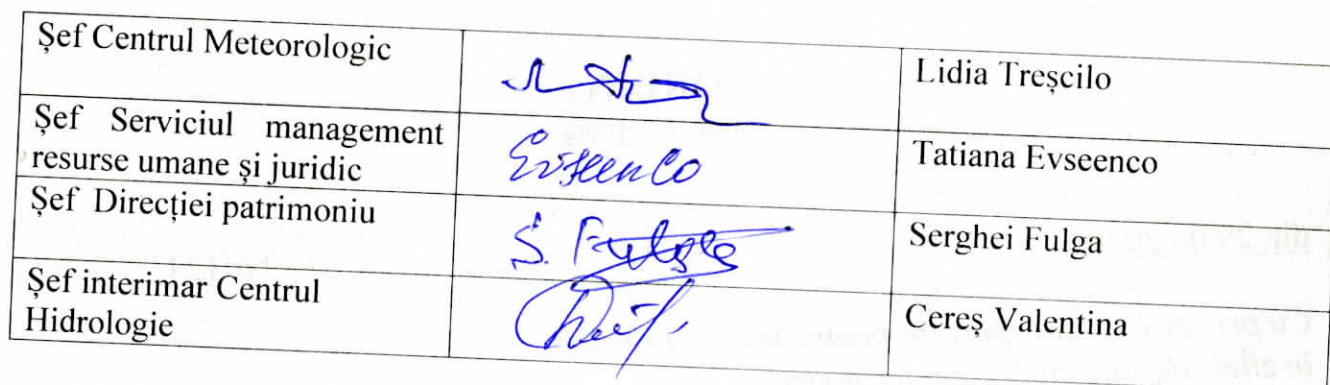 Șef Centrul Meteorologic
Lidia Treșcilo
Șef Serviciul management
resurse umane și juridic
Evseenco
Tatiana Evseenco
Șef Direcției patrimoniu
S. Fulga
Serghei Fulga
Șef interimar Centrul
Hidrologie
Cereș Valentina